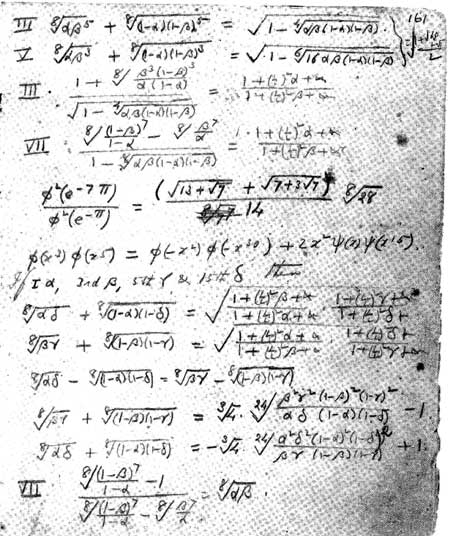 161
III ⁸√αβ⁵ + ⁸√(1-α)(1-β)⁵ = √(1 - ⁴√αβ(1-α)(1-β)).
V ⁸√αβ³ + ⁸√(1-α)(1-β)³ = √(1 - ⁶√16αβ(1-α)(1-β))
III. (1 + ⁸√(β³(1-β)³/α(1-α))) / √(1 - ⁴√αβ(1-α)(1-β)) = (1+(½)²α+&) / (1+(½)²β+&)
VII (⁸√((1-β)⁷/(1-α)) - ⁸√(β⁷/α)) / (1 - ⁸√αβ(1-α)(1-β)) = (1+(½)²α+&) / (1+(½)²β+&)
φ²(e^-7π) / φ²(e^-π) = (√13+√7 + √7+3√7) / 14 ⁸√28
φ(x³) φ(x⁵) = φ(-x²) φ(-x³⁰) + 2x² ψ(x) ψ(x¹⁵).
If I α, 3rd β, 5th γ & 15th δ
⁸√αδ + ⁸√(1-α)(1-δ) = √((1+(½)²β+&)/(1+(½)²α+&) · (1+(½)²γ+&)/(1+(½)²δ+))
⁸√βγ + ⁸√(1-β)(1-γ) = √((1+(½)²α+&)/(1+(½)²β+&) · (1+(½)²δ+)/(1+(½)²γ+&))
⁸√αδ - ⁸√(1-α)(1-δ) = ⁸√βγ - ⁸√(1-β)(1-γ)
⁸√βγ + ⁸√(1-β)(1-γ) = ³√4 · ²⁴√(β²γ²(1-β)²(1-γ)²/αδ(1-α)(1-δ)) - 1.
⁸√αδ + ⁸√(1-α)(1-δ) = -³√4 · ²⁴√(α²δ²(1-α)²(1-δ)²/βγ(1-β)(1-γ)) + 1
VII (⁸√((1-β)⁷/(1-α)) - 1) / (⁸√((1-β)⁷/(1-α)) - ⁸√(β⁷/α)) = ⁸√αβ.